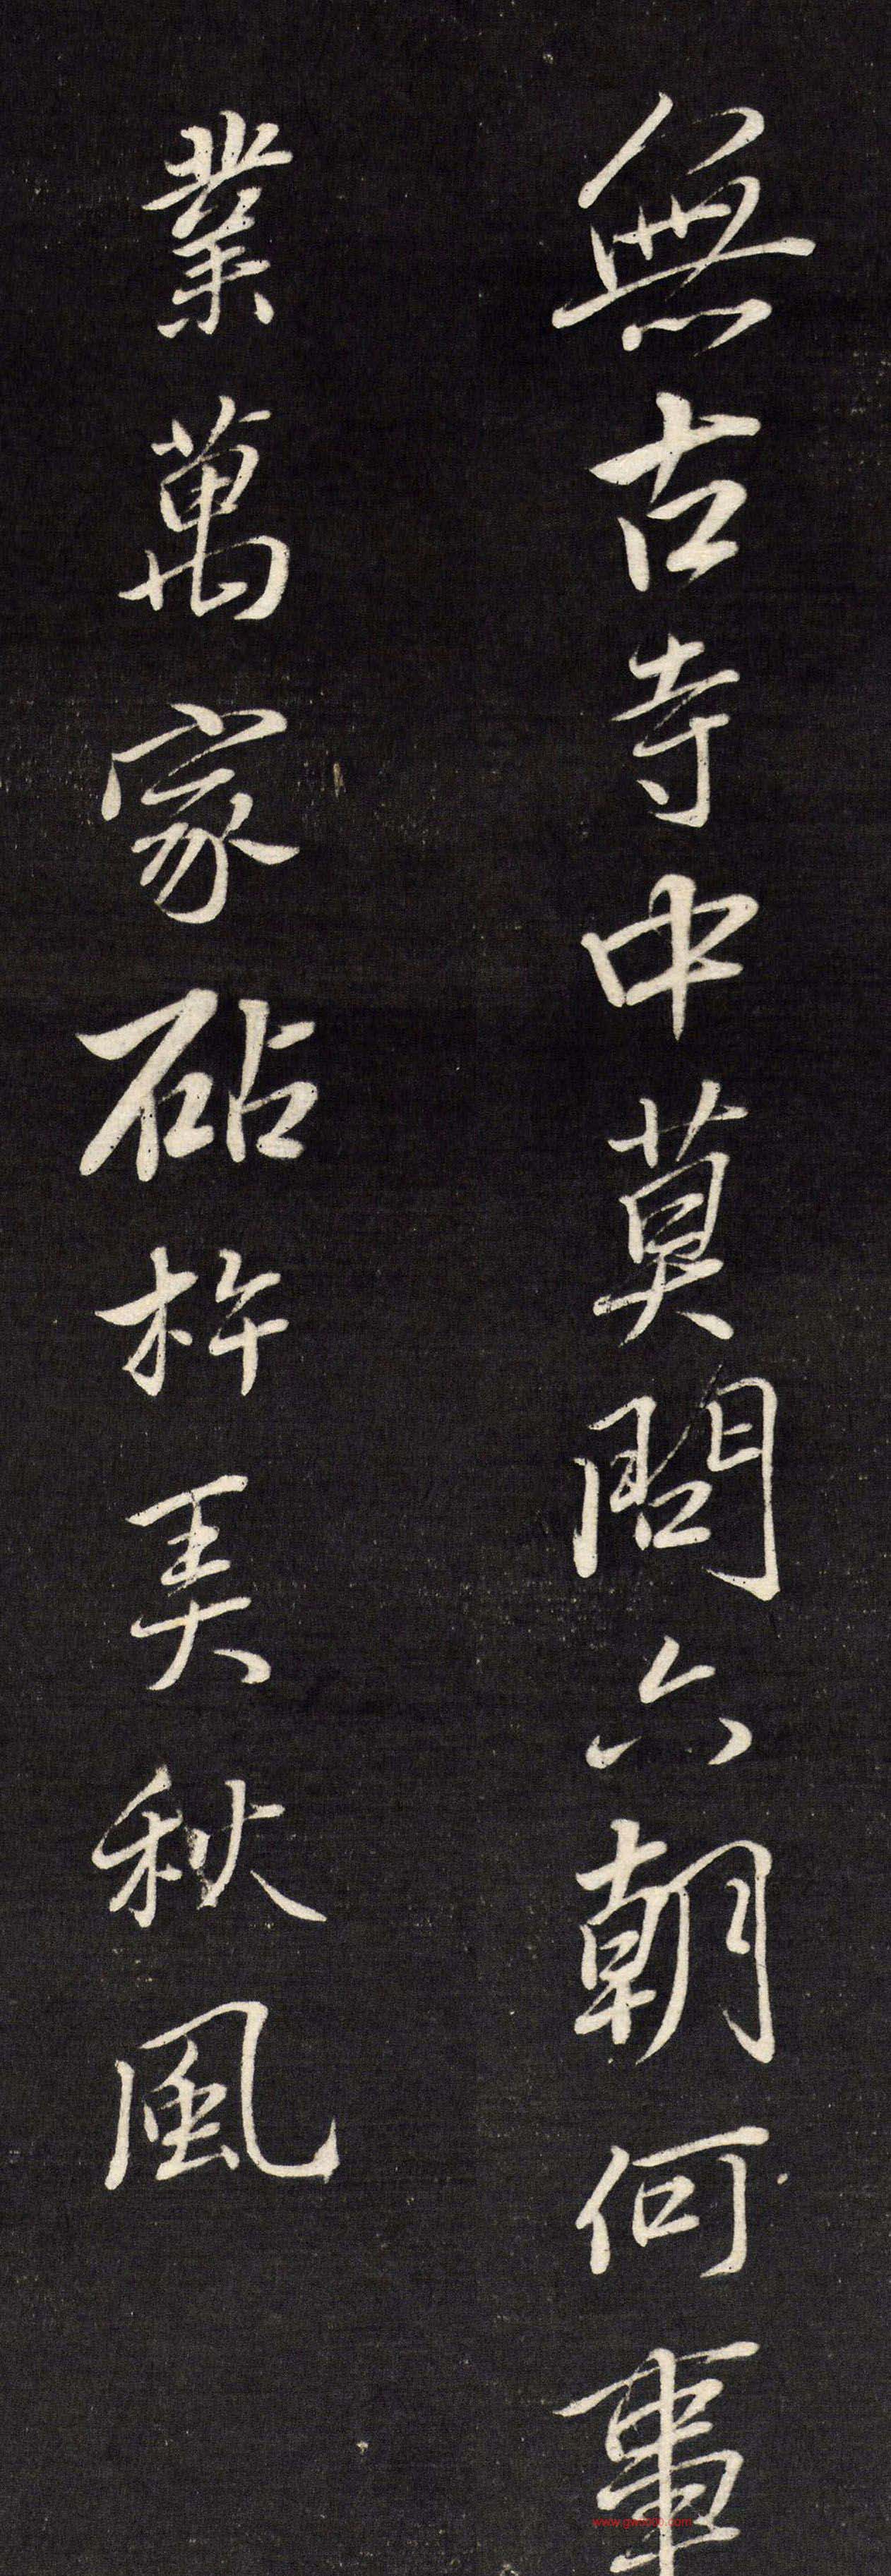 無古寺中莫問六朝何事
業萬家砧杵弄秋風